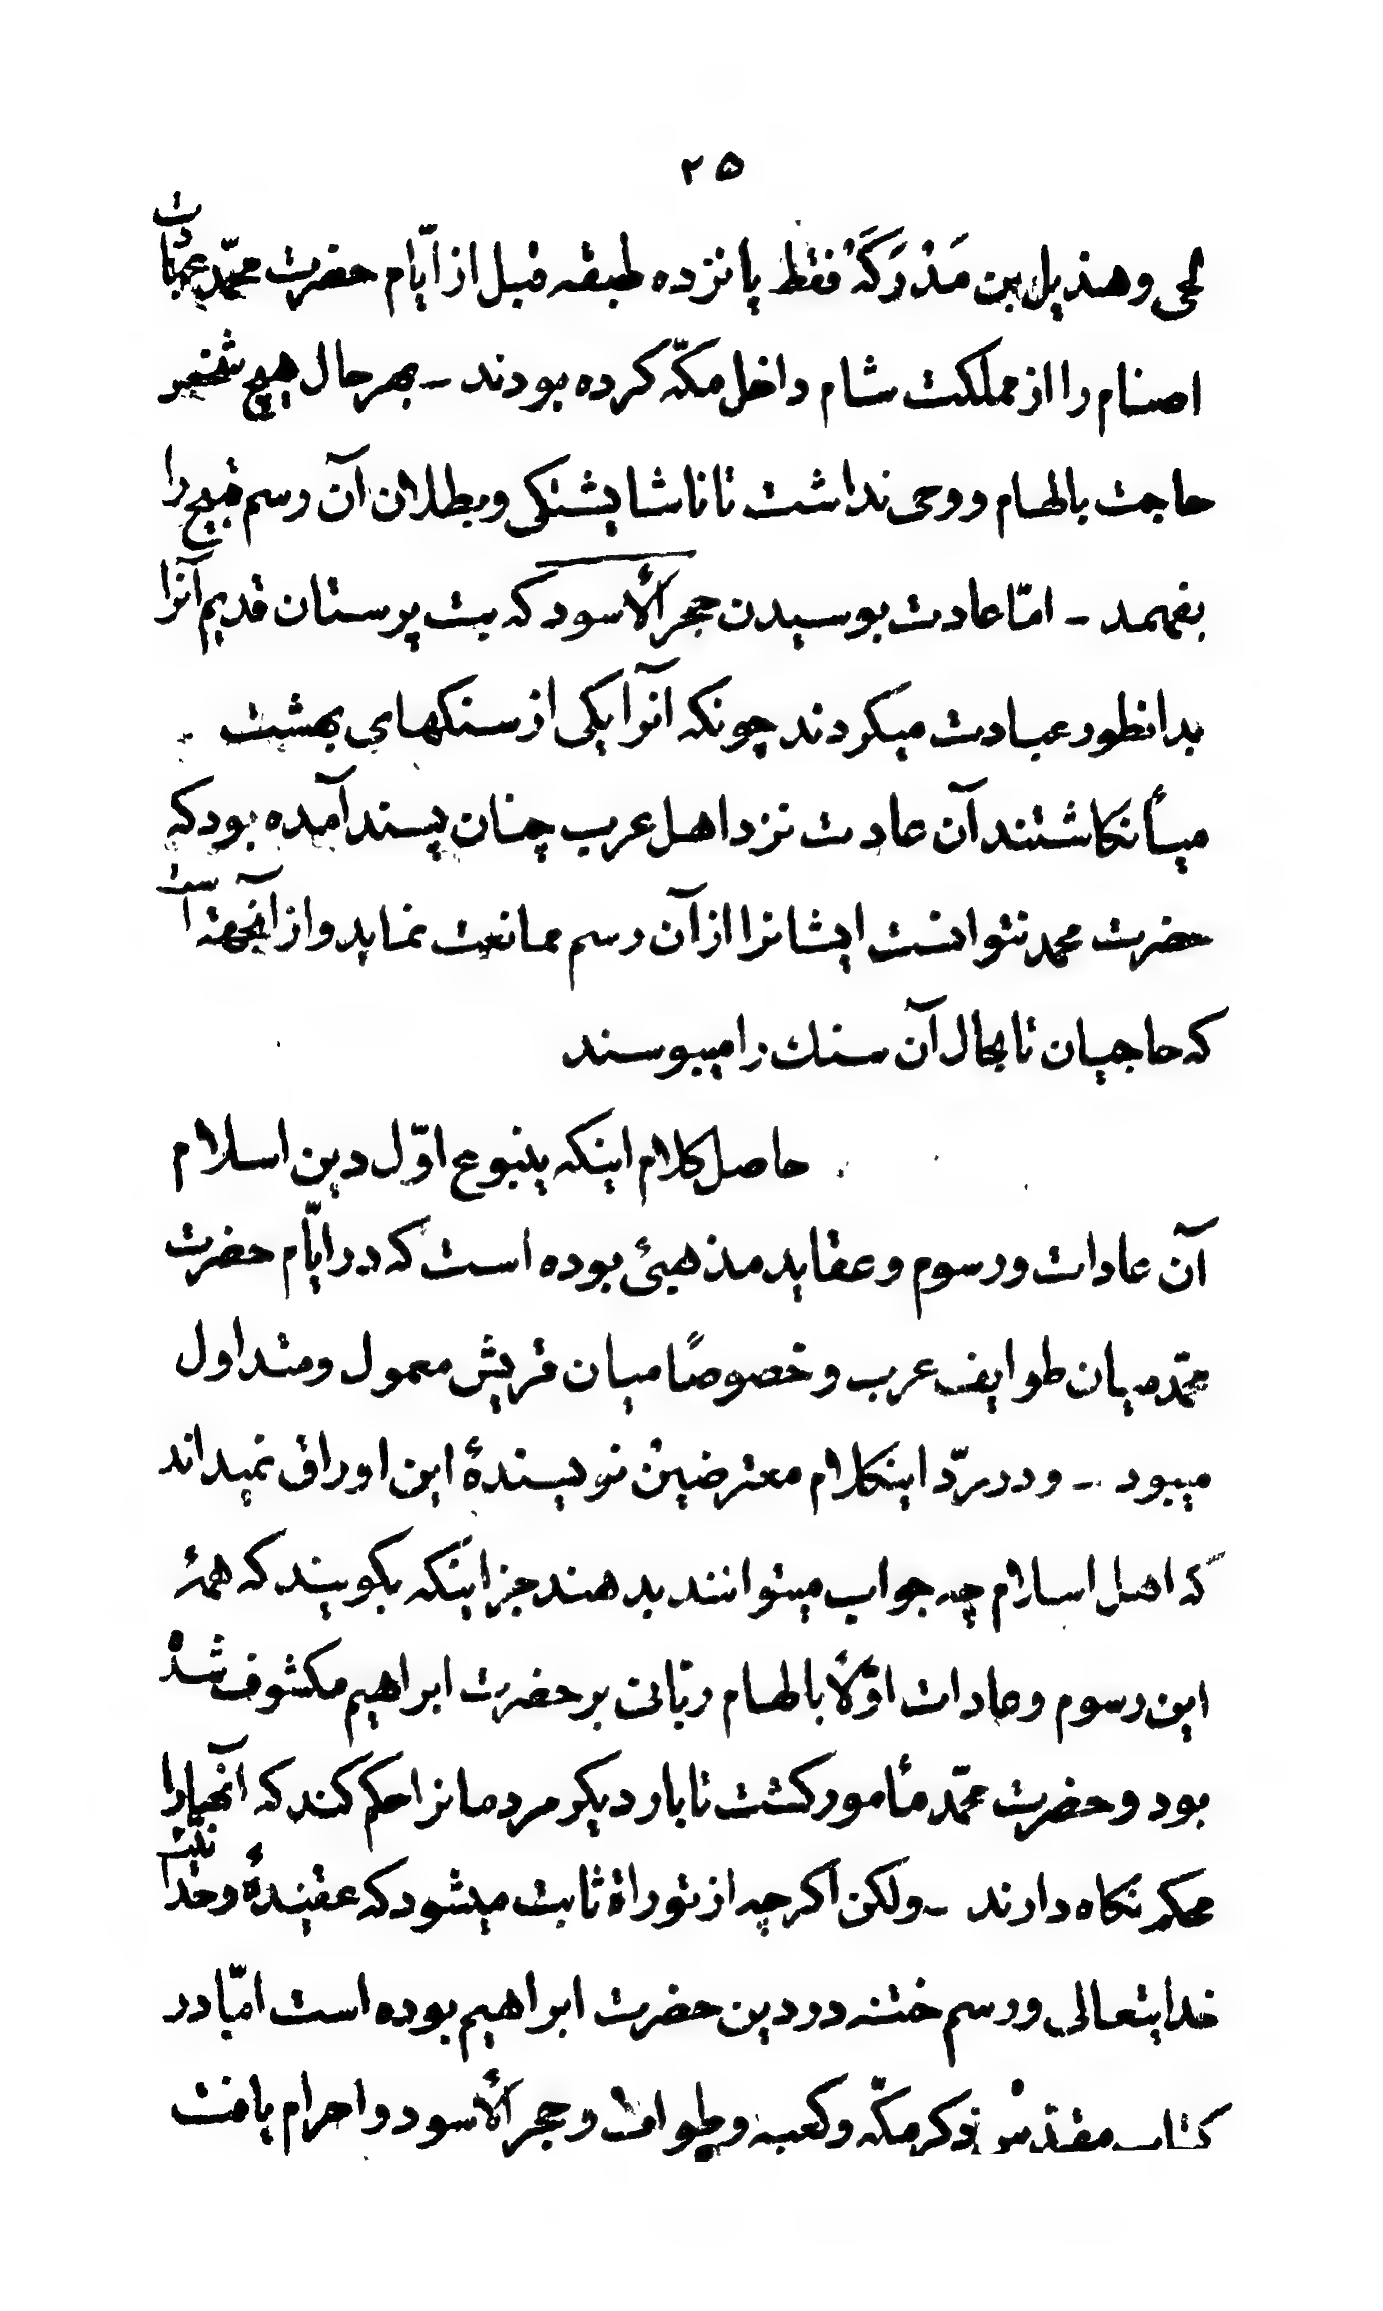 ۲۵
لحی و هذیل بن مَدْرَکَهٔ فقط پانزده طبقه قبل از ایّام حضرت محمّد عبادت
اصنام را از مملکت شام داخل مکّه کرده بودند ــ بهر حال هیچ شخص
حاجت بالهام و وحی نداشت تا ناشایشتکی و بطلان آن رسم قبیح را
بفهمد ــ امّا عادت بوسیدن حجر الأسود که بت پرستان قدیم آنرا
بدانطور عبادت میکردند چونکه آنرا یکی از سنکهای بهشت
میأنکاشتند آن عادت نزد اهل عرب چنان پسند آمده بود که
حضرت محمد نتوانست ایشانرا از آن رسم ممانعت نماید و از آنجهة است
که حاجیان تا بحال آن سنك را میبوسند
حاصل کلام اینکه ینبوع اوّل دین اسلام
آن عادات و رسوم و عقاید مذهبئ بوده است که در ایّام حضرت
محمّد میان طوایف عرب و خصوصًا میان قریش معمول و متداول
میبود ــ و در ردّ اینکلام معترضین نویسندهٔ این اوراق نمیداند
که اهل اسلام چه جواب میتوانند بدهند جز اینکه بکویند که همهٔ
این رسوم و عادات اوّلاً بالهام ربّانی بر حضرت ابراهیم مکشوف شده
بود و حضرت محمّد مأمور کشت تا بار دیکر مردمانرا حکم کند که آنها را
محکم نکاه دارند ــ ولکن اکرچه از توراة ثابت میشود که عقیدهٔ وحدانیّت
خدایتعالی و رسم ختنه در دین حضرت ابراهیم بوده است امّا در
کتاب مقدّس ذکر مکّه و کعبه و طواف و حجر الأسود و احرام یافت